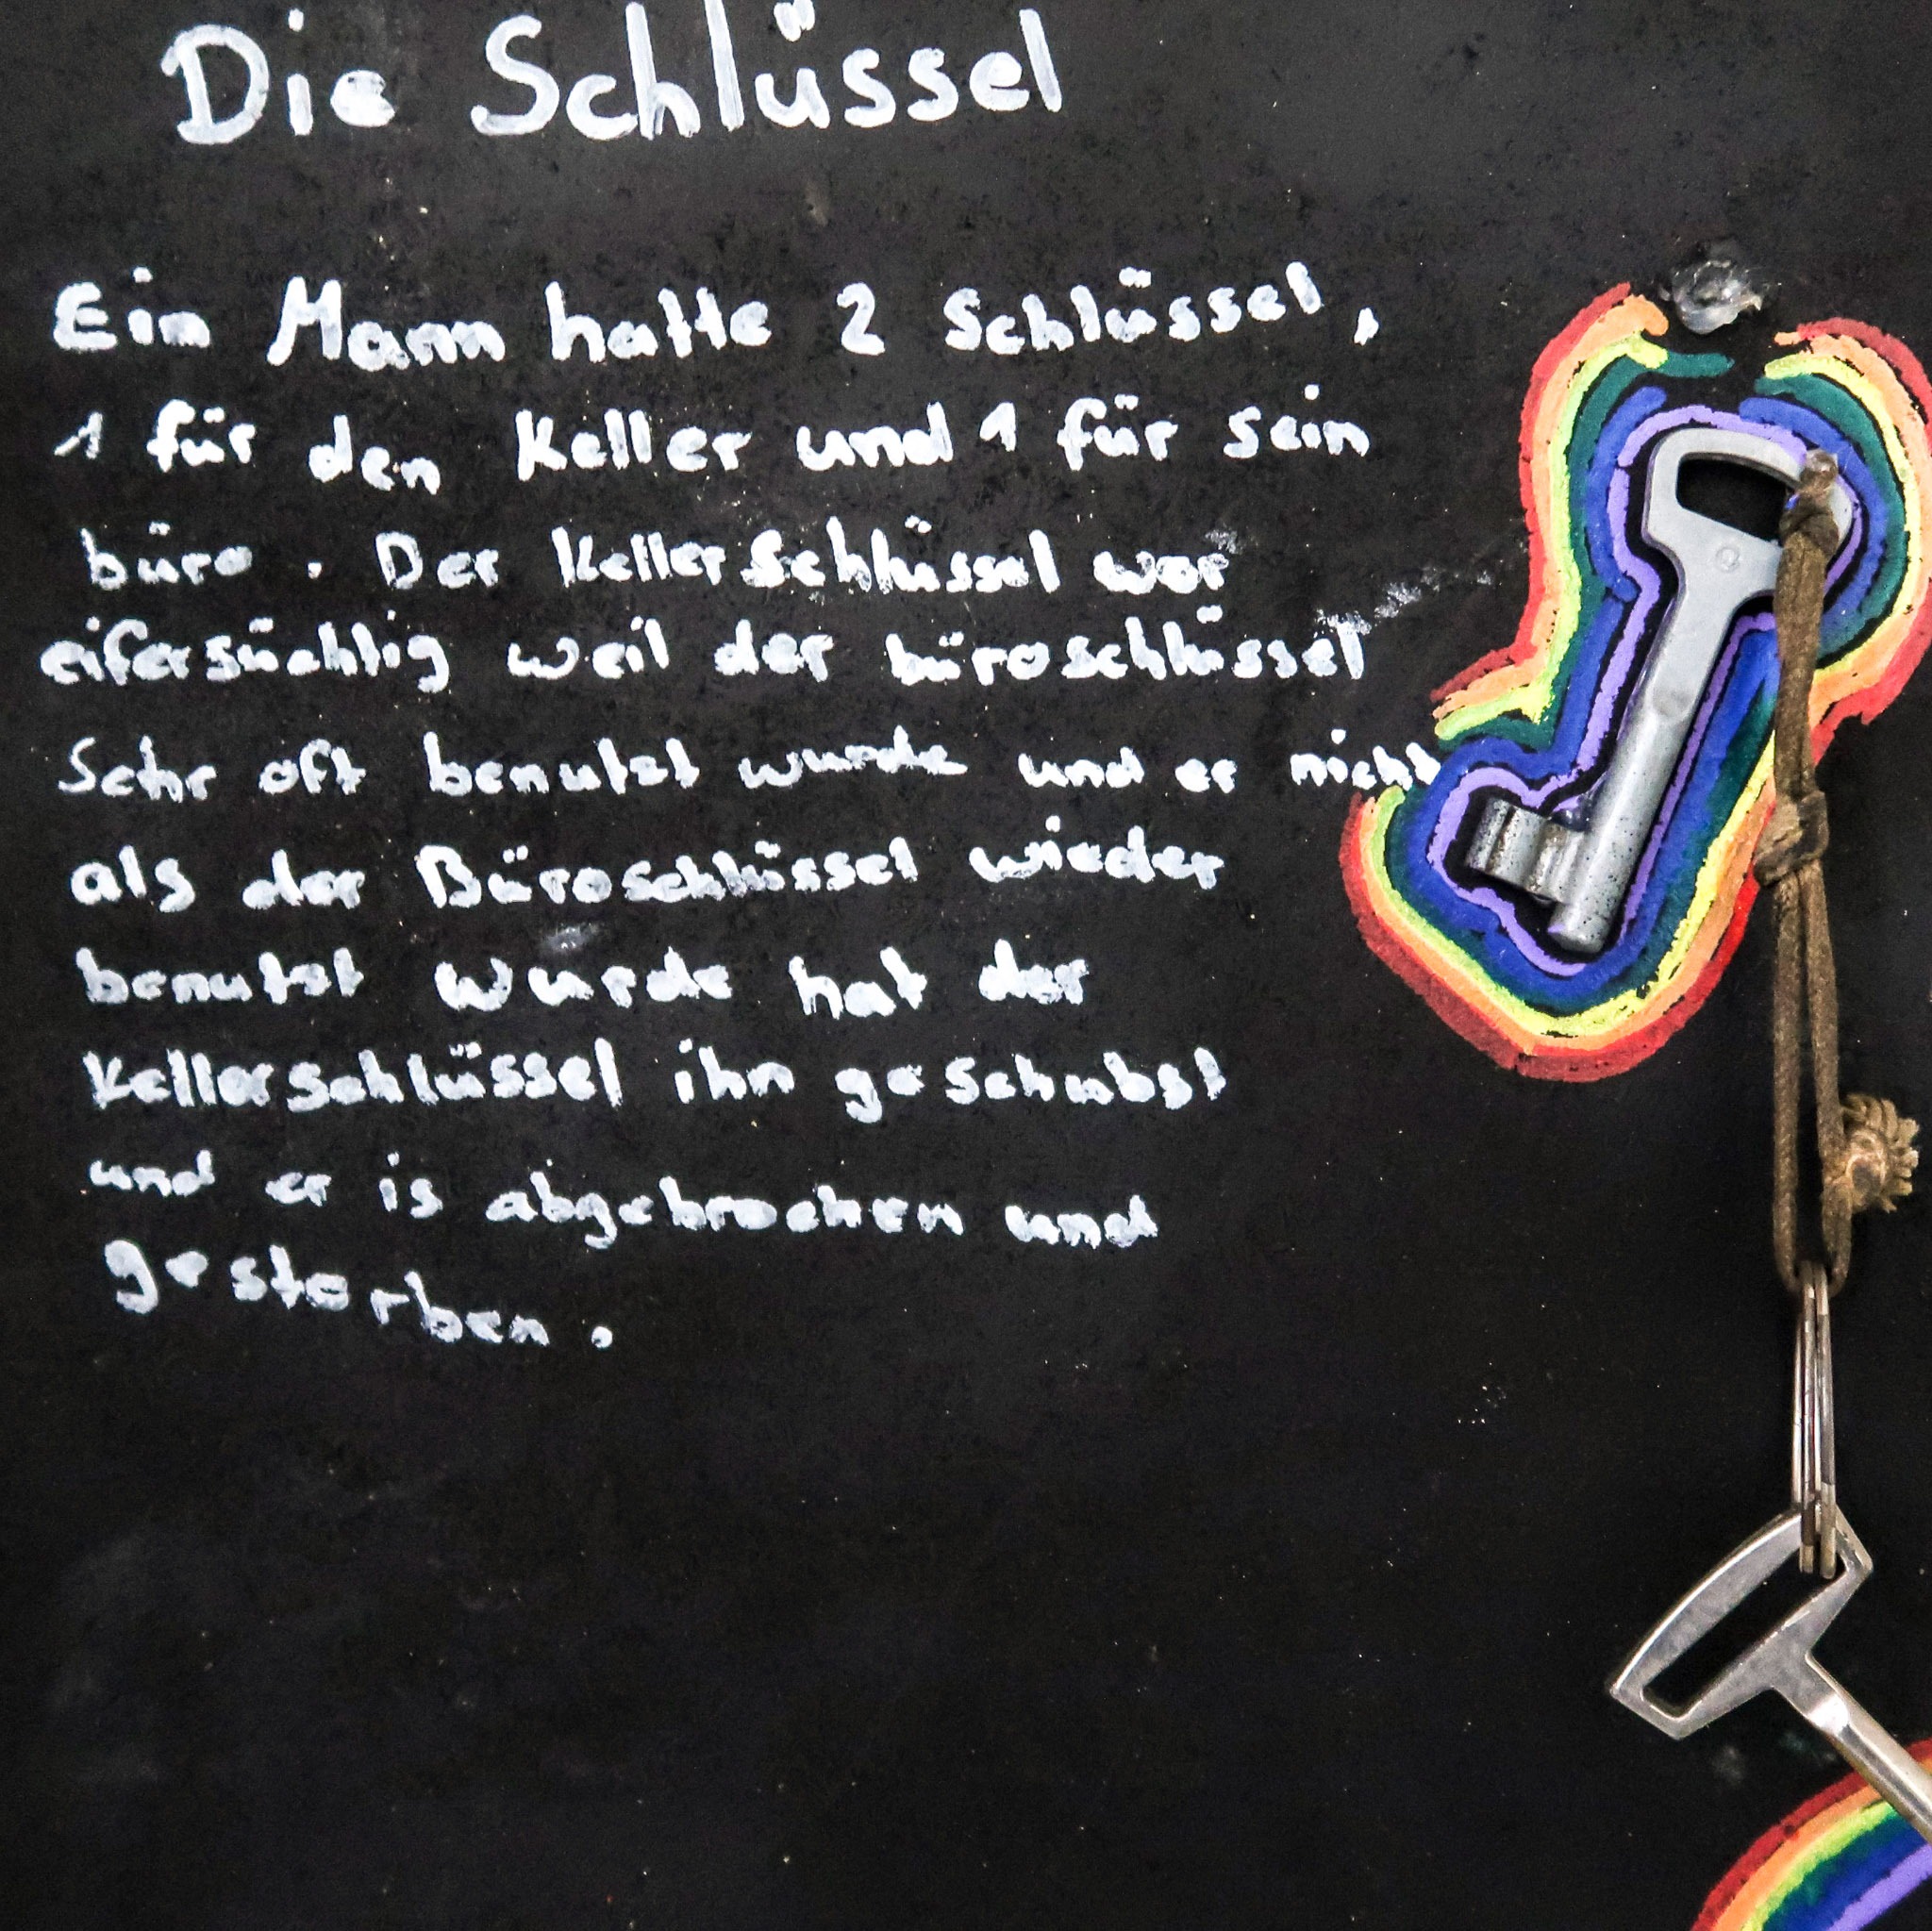 Die Schlüssel
Ein Mann hatte 2 Schlüssel,
1 für den Keller und 1 für sein
büro. Der Kellerschlüssel war
eifersüchtig weil der büroschlüssel
Sehr oft benutzt wurde und er nicht
als der Büroschlüssel wieder
benutzt wurde hat der
Kellerschlüssel ihn geschubst
und er is abgebrochen und
gestorben.